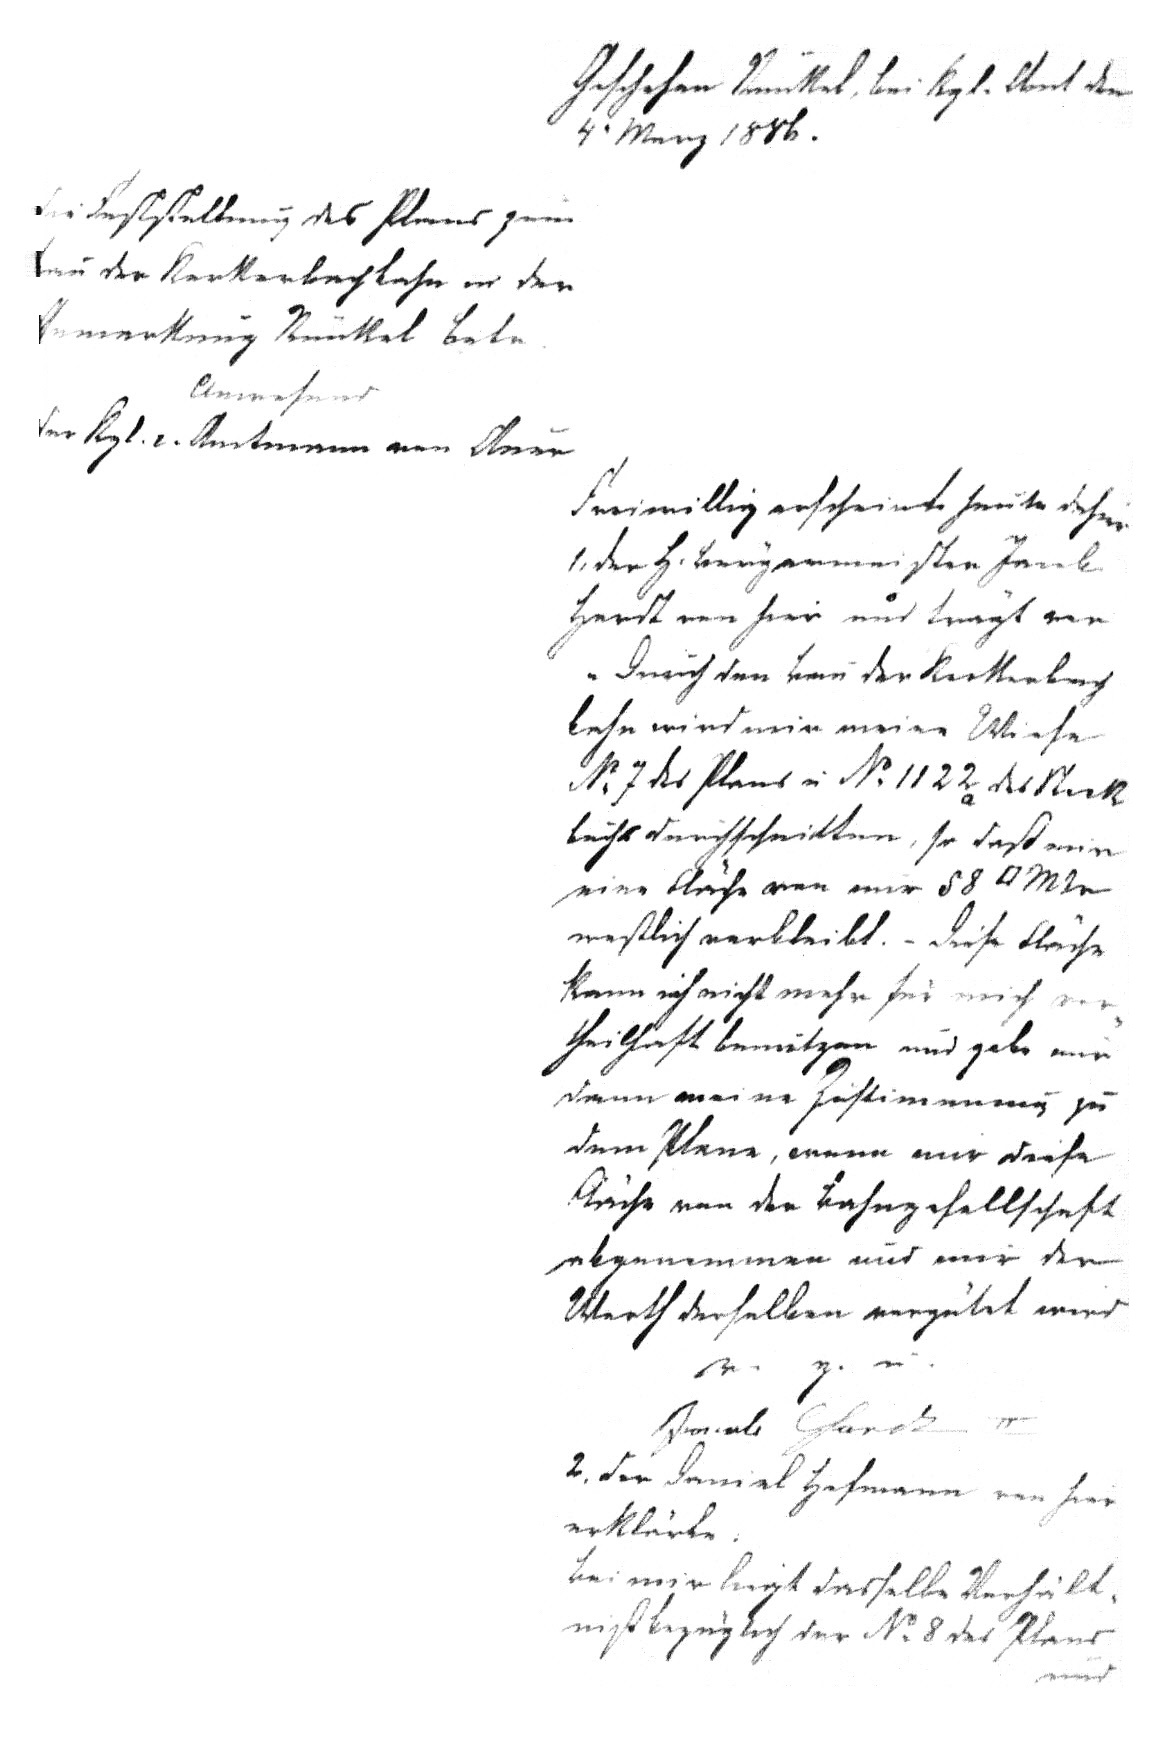 Geschehen Runkel, bei Kgl. Amt den
4. März 1886.
die Feststellung des Plans zum
Bau der Kerkerbachbahn in der
Gemarkung Runkel betr.
Anwesend
der Kgl. Amtmann von
Freiwillig erscheint heute dahier
1, der H. Bürgermeister Jacob
Hardt von hier und trägt vor
" Durch den Bau der Kerkerbach
bahn wird mir meine Wiese
No. 7 des Plans u No. 1122a des Stock
buchs durchschnitten, so daß mir
eine Fläche von nur 58 □ Mtr
westlich verbleibt. - Diese Fläche
kann ich nicht mehr für mich vor-
theilhaft benutzen und gebe nur
dann meine Zustimmung zu
dem Plane, wenn mir diese
Fläche von der Bahngesellschaft
abgenommen und mir der
Werth derselben vergütet wird
v. g. u.
Jacob Hardt II
2. der Daniel Hofmann von hier
erklärte:
Bei mir liegt dasselbe Verhält-
niß bezüglich der No. 8 des Plans
und